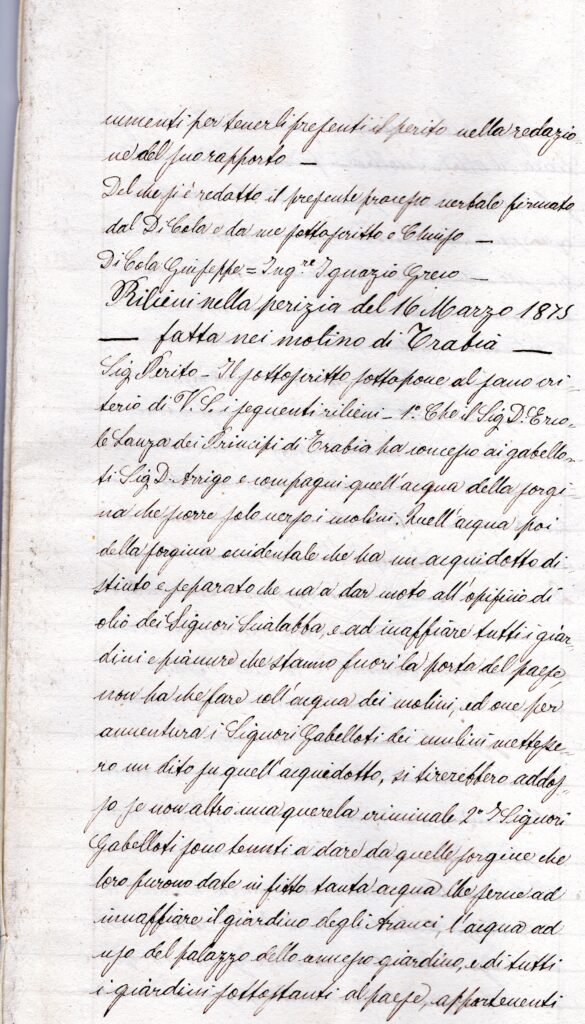 numenti per tenerli presenti il perito nella redazio=
ne del suo rapporto —
Del che si è redatto il presente processo verbale firmato
dal Di Cola e da me sottoscritto e Chiuso —
Di Cola Giuseppe = Ing.re Ignazio Greco —
Rilievi nella perizia del 16 Marzo 1875
— fatta nei molino di Trabia —
Sig. Perito – Il sottoscritto sottopone al sano cri-
terio di V. S. i seguenti rilievi – 1°. Che il Sig D. Erco-
le Lanza dei Principi di Trabia ha concesso ai gabello-
ti Sig D. Arrigo e compagni quell'acqua della sorgi-
na che scorre solo verso i molini. Quell'acqua poi
della sorgiva occidentale che ha un acquidotto di-
stinto e separato che va a dar moto all'opificio di
olio dei Signori Scalabba, e ad inaffiare tutti i giar-
dini e pianure che stanno fuori la porta del paese,
non ha che fare coll'acqua dei molini, ed ove per
avventura i Signori Gabelloti dei mulini mettesse-
ro un dito su quell'acquidotto, si tirerebbero addos-
so se non altro una querela criminale 2° I Signori
Gabelloti sono tenuti a dare da quelle sorgine che
loro furono date in fitto tanta acqua che serve ad
innaffiare il giardino degli Aranci, l'acqua ad
uso del palazzo dello annesso giardino, e di tutti
i giardini sottostanti al paese, appartenenti